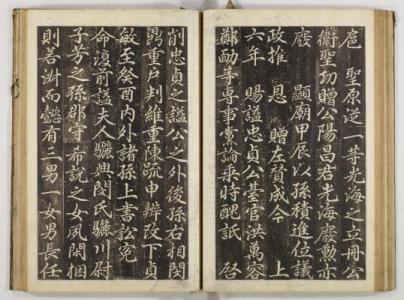 扈 聖原從一等光海之立冊公
衛聖功贈公陽昌君光海廢勳亦
廢 顯廟甲辰以孫積進位議
政推 恩 贈左贊成今 上
六年 賜謚忠貞公墓官洪萬容
鄭勔等專事黨論乘時醜詆 啓
削忠貞之謚公之外後孫右相閔
黯重戶判維重陳疏申辨改下貞
敏至癸酉內外諸孫上書訟冤
命復前謚夫人驪興閔氏驪川尉
子芳之孫郡守希說之女夙閑梱
則若洲而懿有三男一女男長任